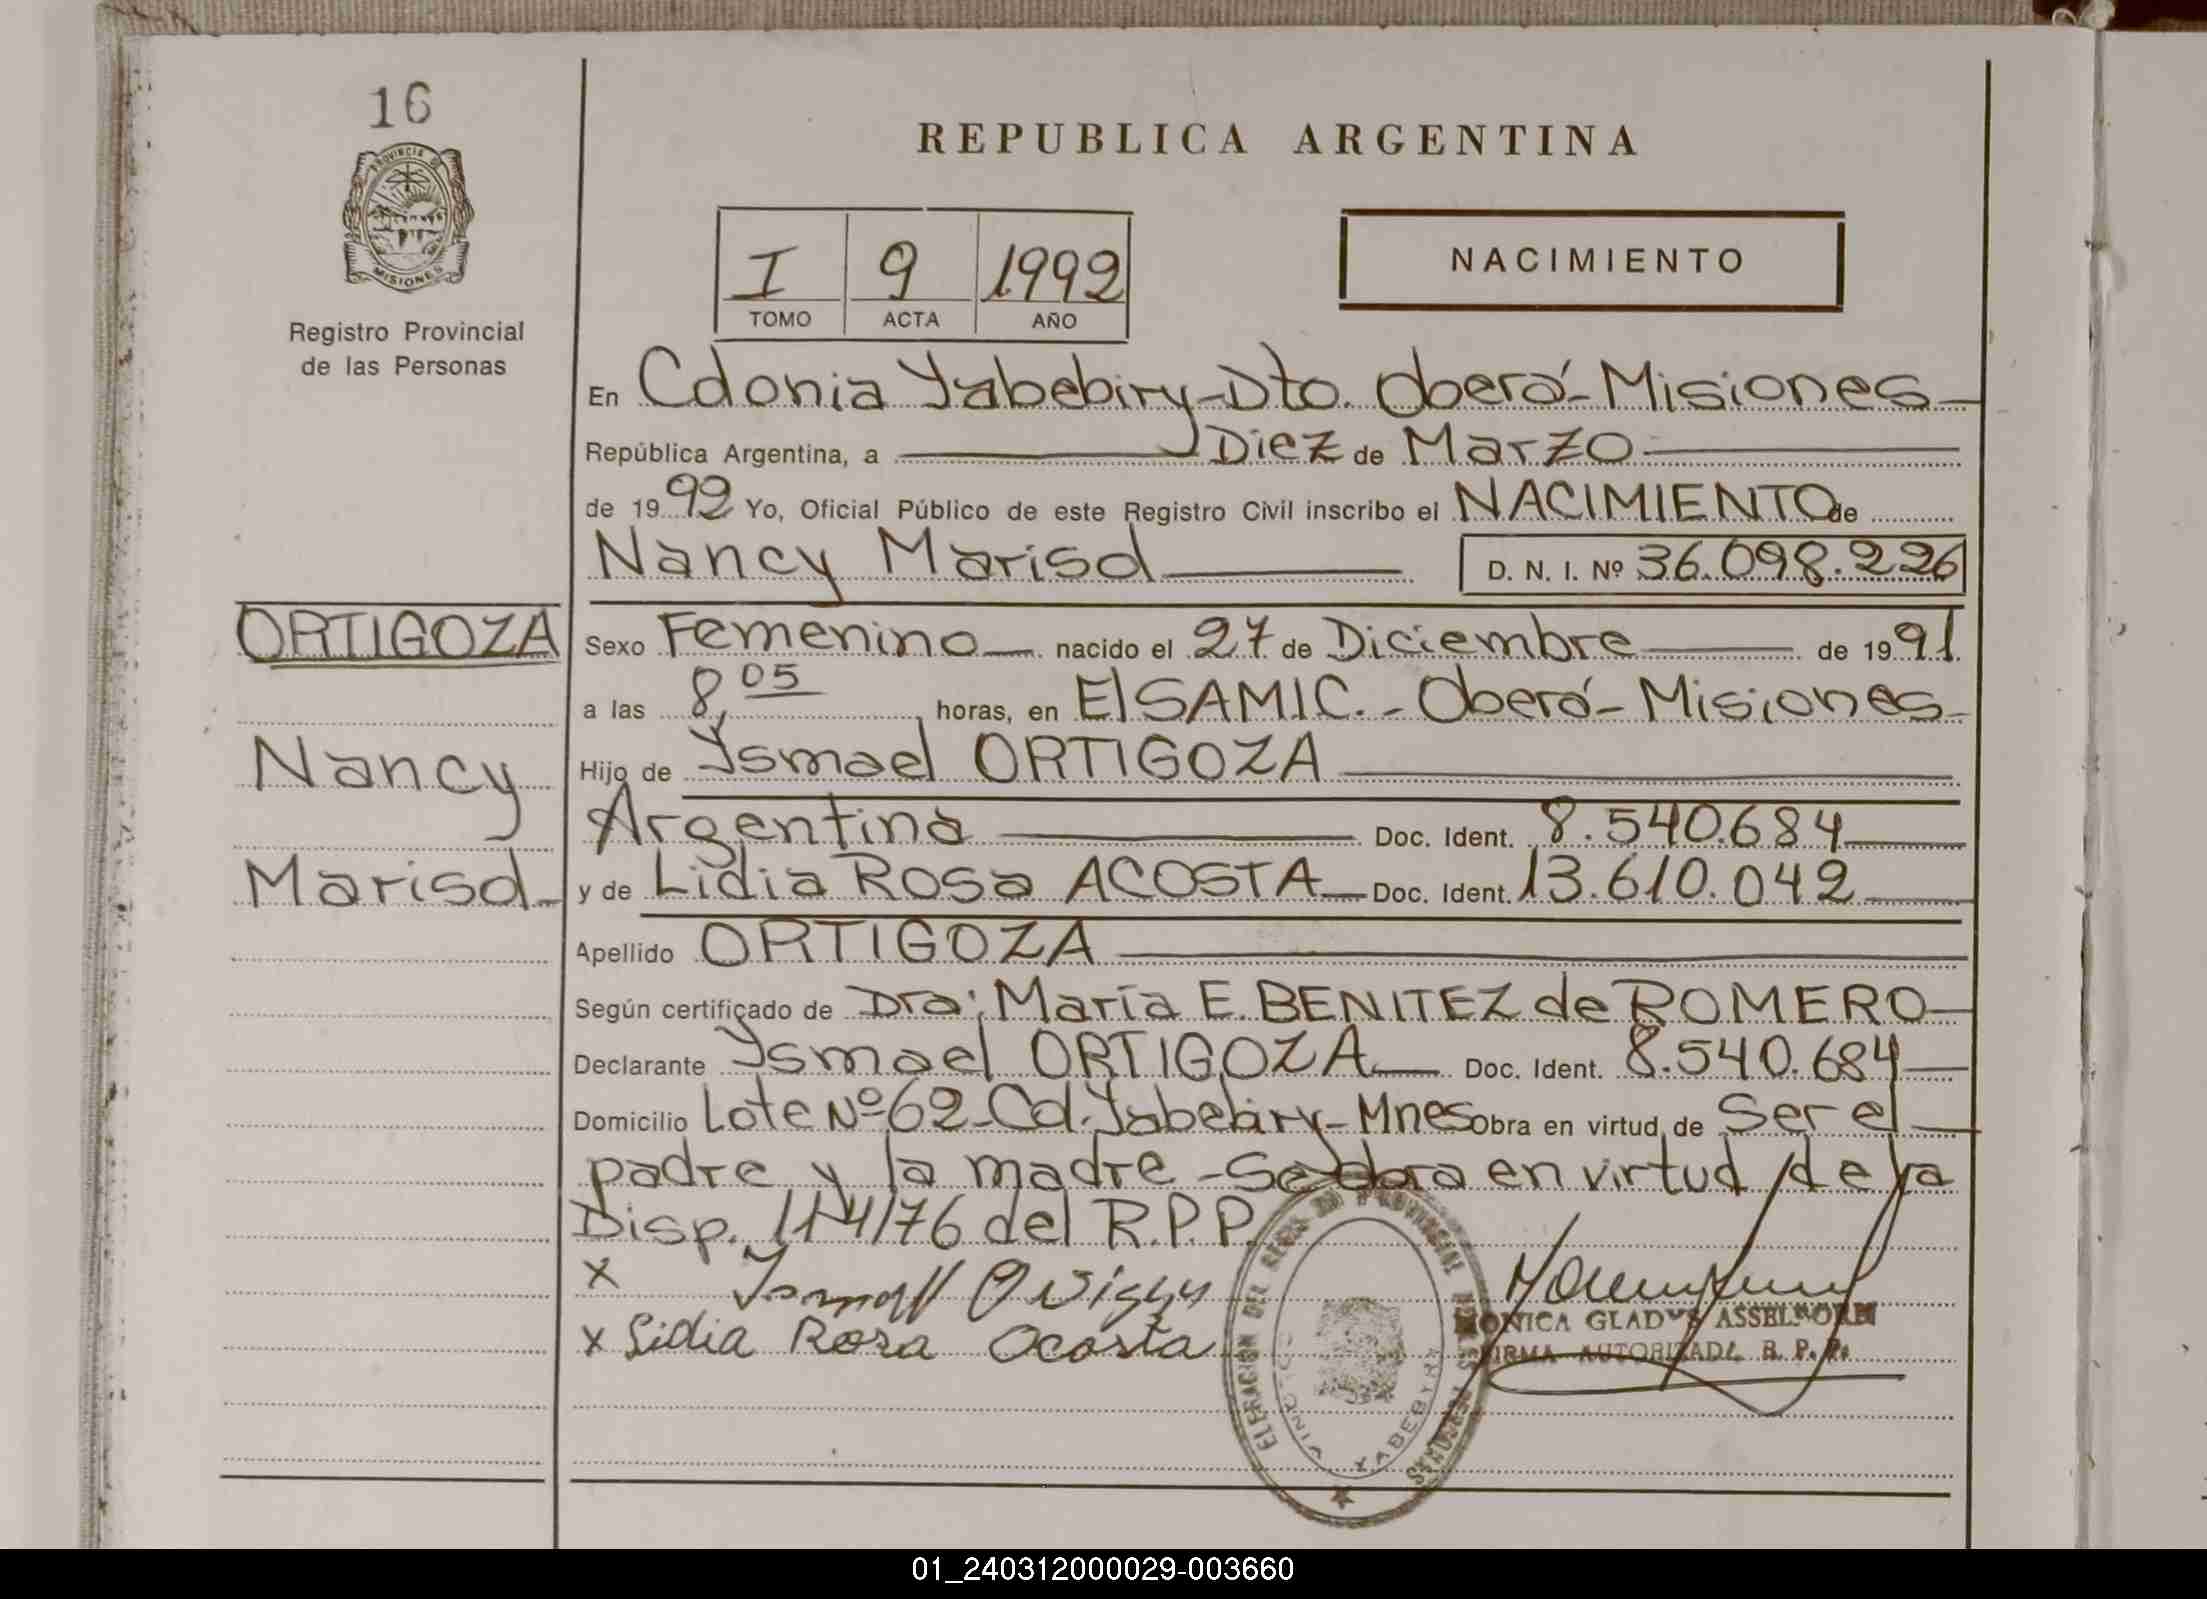 16
PROVINCIA DE
MISIONES
Registro Provincial
de las Personas
REPUBLICA ARGENTINA
I 9 1992
TOMO ACTA AÑO
NACIMIENTO
En Colonia Yabebiry-Dto. Oberá-Misiones
República Argentina, a Diez de Marzo
de 1992 Yo, Oficial Público de este Registro Civil inscribo el NACIMIENTO de
Nancy Marisol D. N. I. Nº 36.098.226
ORTIGOZA
Nancy
Marisol
Sexo Femenino nacido el 27 de Diciembre de 1991
a las 8,05 horas, en El SAMIC.- Oberá- Misiones
Hijo de Ysmael ORTIGOZA
Argentina Doc. Ident. 8.540.684
y de Lidia Rosa ACOSTA Doc. Ident. 13.610.042
Apellido ORTIGOZA
Según certificado de Dra: María E. BENITEZ de ROMERO
Declarante Ysmael ORTIGOZA Doc. Ident. 8.540.684
Domicilio Lote Nº 62-Col. Yabebiry-Mnes Obra en virtud de Ser el
padre y la madre -Se obra en virtud de la
Disp. 114/76 del R.P.P.
x
x Lidia Rosa Acosta
MONICA GLADYS
FIRMA AUTORIZADA R. P. P.
DEL PROVINCIAL PERSONAS
YABEBYRY
01_240312000029-003660